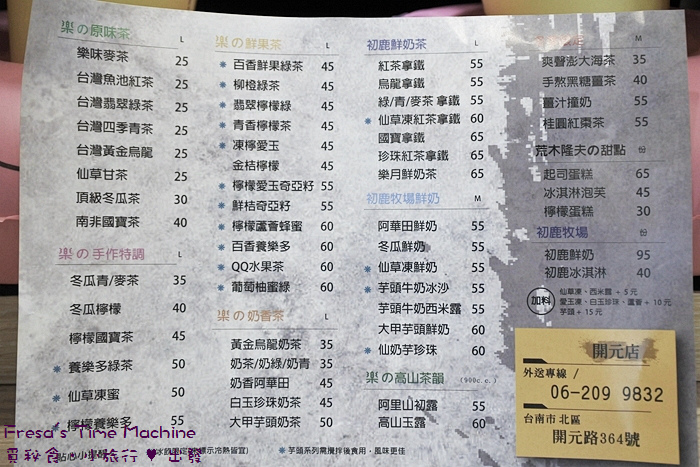 楽の原味茶 L
樂味麥茶 25
台灣魚池紅茶 25
台灣翡翠綠茶 25
台灣四季青茶 25
台灣黃金烏龍 25
仙草甘茶 25
頂級冬瓜茶 30
南非國寶茶 40
楽の手作特調 L
冬瓜青/麥茶 35
冬瓜檸檬 40
檸檬國寶茶 45
養樂多綠茶 50
仙草凍蜜 50
檸檬養樂多 55
楽の鮮果茶 L
百香鮮果綠茶 45
柳橙綠茶 45
翡翠檸檬綠 45
青香檸檬茶 45
凍檸愛玉 45
金桔檸檬 45
檸檬愛玉奇亞籽 55
鮮桔奇亞籽 55
檸檬蘆薈蜂蜜 60
百香養樂多 60
QQ水果茶 60
葡萄柚蜜綠 60
楽の奶香茶 L
黃金烏龍奶茶 35
奶茶/奶綠/奶青 35
奶香阿華田 45
白玉珍珠奶茶 45
大甲芋頭奶茶 50
初鹿鮮奶茶 L
紅茶拿鐵 55
烏龍拿鐵 55
綠/青/麥茶 拿鐵 55
仙草凍紅茶拿鐵 60
國寶拿鐵 65
珍珠紅茶拿鐵 65
樂月鮮奶茶 65
初鹿牧場鮮奶 M
阿華田鮮奶 55
冬瓜鮮奶 55
仙草凍鮮奶 55
芋頭牛奶冰沙 55
芋頭牛奶西米露 55
大甲芋頭鮮奶 60
仙奶芋珍珠 60
楽の高山茶韻 (900c.c.)
阿里山初露 55
高山玉露 60
芋頭系列需攪拌後食用，風味更佳
M
爽聲澎大海茶 35
手熬黑糖薑茶 40
薑汁撞奶 55
桂圓紅棗茶 55
荒木隆夫の甜點 份
起司蛋糕 65
冰淇淋泡芙 45
檸檬蛋糕 30
初鹿牧場 份
初鹿鮮奶 95
初鹿冰淇淋 40
加料
仙草凍、西米露 + 5 元
愛玉凍、白玉珍珠、蘆薈 + 10 元
芋頭 + 15 元
開元店
外送專線 /
06-209 9832
台南市 北區
開元路364號
Fresa's Time Machine